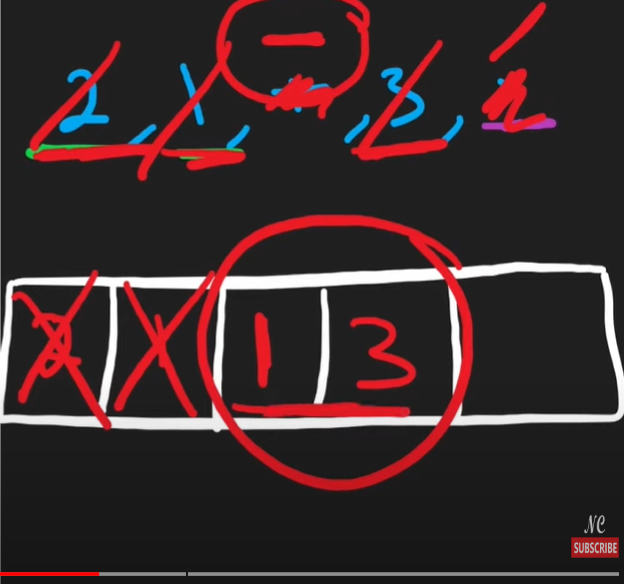 2, 1, -, 3,
2 1 1 3
NC
SUBSCRIBE